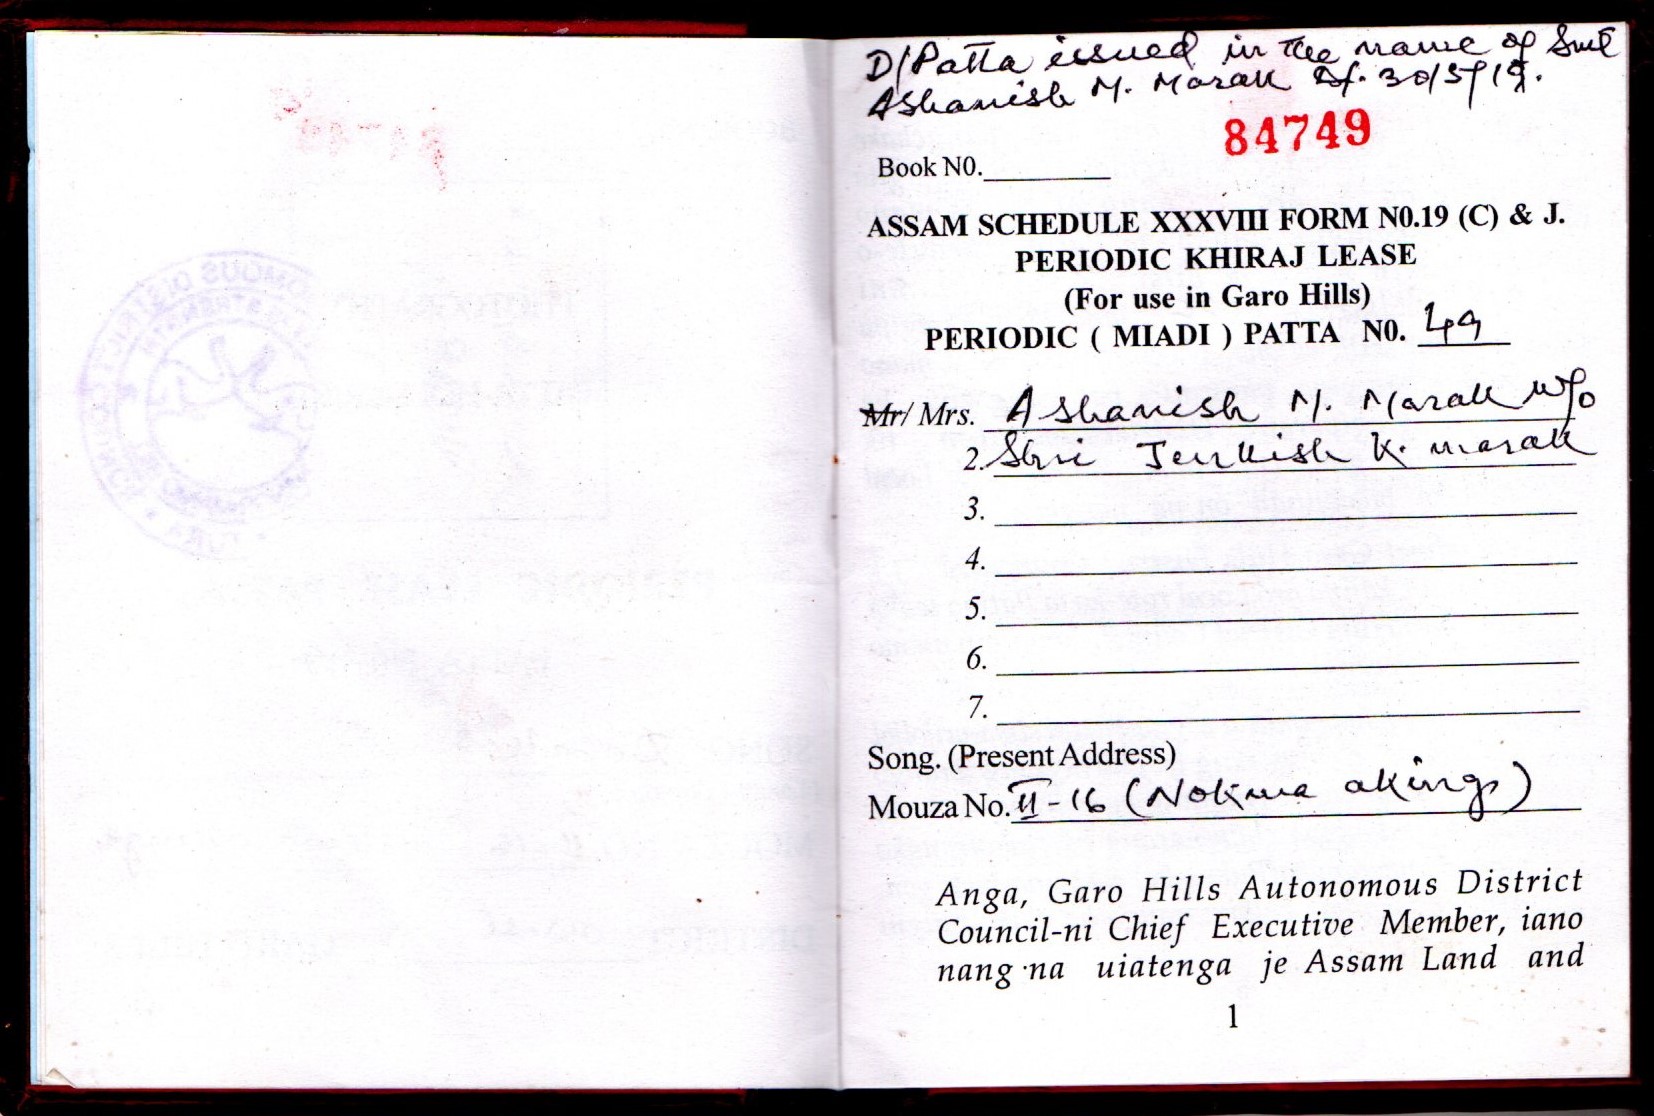 D/Patta issued in the name of Smt
Ashanish M. Marak Dt. 30/5/19.
84749
Book N0.
ASSAM SCHEDULE XXXVIII FORM N0.19 (C) & J.
PERIODIC KHIRAJ LEASE
(For use in Garo Hills)
PERIODIC ( MIADI ) PATTA N0. 49
Mr/ Mrs. Ashanish M. Marak W/o
2. Shri Jenkish K. marak
3.
4.
5.
6.
7.
Song. (Present Address)
Mouza No. II-16 (Nokma aking)
Anga, Garo Hills Autonomous District
Council-ni Chief Executive Member, iano
nang·na uiatenga je Assam Land and
1